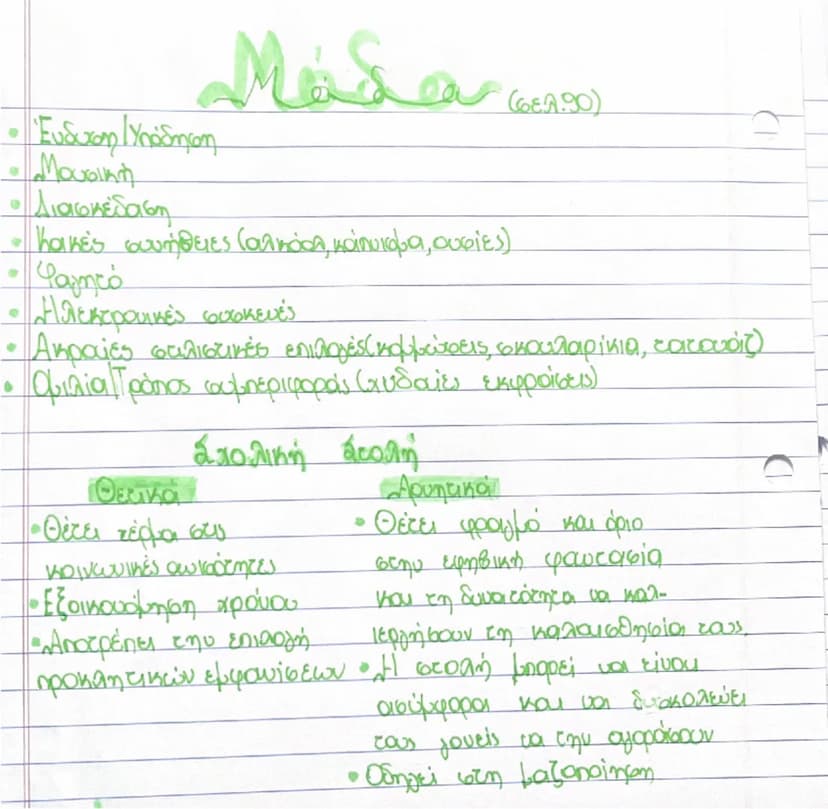 Μόδα (σελ.90)
• Ένδυση/Υπόδηση
• Μουσική
• Διασκέδαση
• Κακές συνήθειες (αλκοόλ, κάπνισμα, ουσίες)
• Φαγητό
• Ηλεκτρονικές συσκευές
• Ακραίες στιλιστικές επιλογές (κομμώσεις, σκουλαρίκια, τατουάζ)
• Ομιλία/Τρόπος συμπεριφοράς (χυδαίες εκφράσεις)
Σχολική Στολή
Θετικά
• Θέτει τέρμα στις
κοινωνικές ανισότητες
• Εξοικονόμηση χρόνου
• Αποτρέπει την επιλογή
προκλητικών εμφανίσεων
Αρνητικά
• Θέτει φραγμό και όριο
στην εφηβική φαντασία
και τη δυνατότητα να καλ-
λιεργήσουν τη καλαισθησία τους
• Η στολή μπορεί να είναι
ασύμφορη και να δυσκολεύει
τους γονείς να την αγοράσουν
• Οδηγεί στη μαζοποίηση